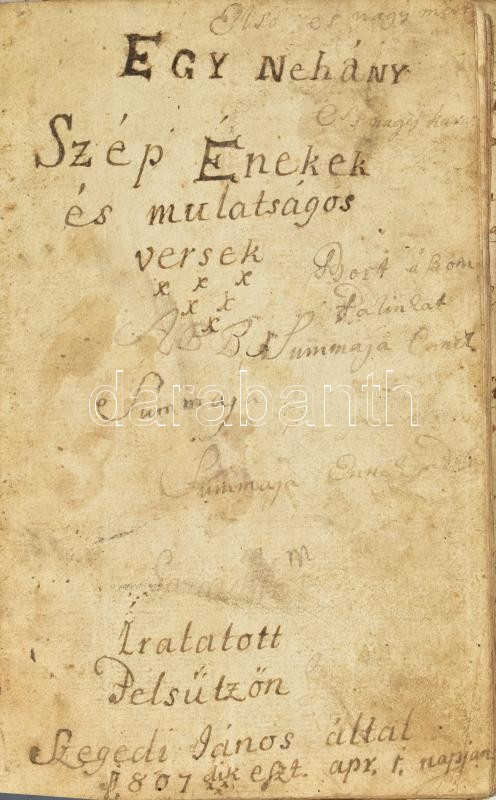 Első és nagy
EGY NehÁNY
és nagy
Szép Énekek
és mulatságos
versek
x x x
x x
x
Bort iszom
Pálinkat
A B B Summaja Ennek
Summaja
darabanth
Summaja Ennek
m
Iratatott
Pelsützön
Szegedi János által
1807dik eszt. apr. 1. napján